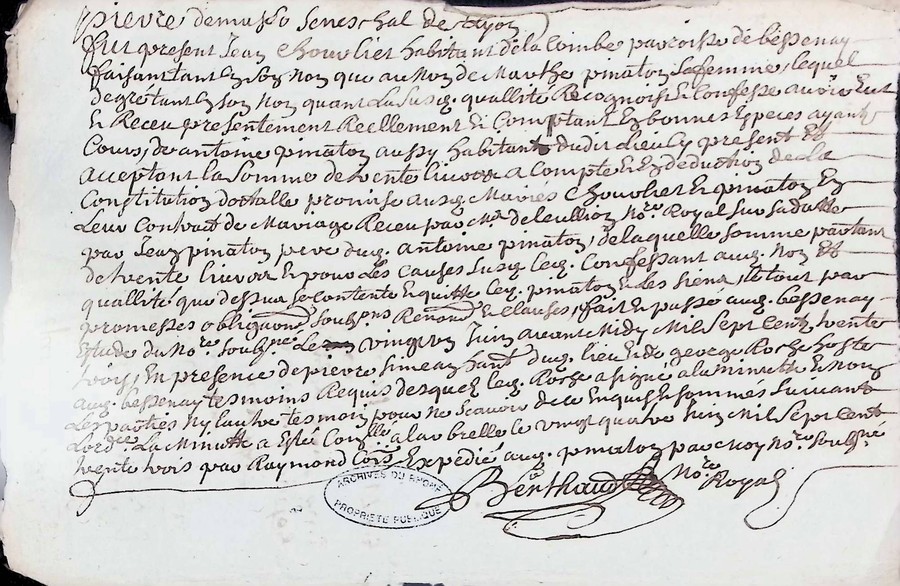 pierre demasso seneschal de Lyon
fut present Jean Chouvliet habitant de la Combe parroisse de bessenay
faisant tant En son Nom que au Nom de Marthe pinaton sa femme, lequel
degré tant En son Nom quant La Susd. quallité Recognoist Et Confesse avoir Eut
Et Receu presentement Reellement Et Comptant En bonnes Especes ayant
Cours, de antoine pinaton aussy habitant dudit Lieu Cy present Et
acceptant la somme de trente livres a Compte Et En deduction de la
Constitution dottalle promise ausd. Mariés Chouvliet Et pinaton En
Leur Contract de Mariage Receu par Me. deleullion Nore. Royal sur sa datte
par Jean pinaton pere dud. antoine pinaton, de laquelle somme partant
de trente livres Et pour Les Causes Susd. Led. Confessant aud. Nom Et
quallité que dessus se contente Et quitte Led. pinaton Et les siens, le tout par
promesses obligaons. soubzons Renonons Et Clauses, fait Et passé aud. bessenay
Etude du Nore. soubzné. Le vingt un Juin avant Midy Mil Sept Cents trente
trois, En presence de pierre simean hant. dud. lieu Et de george Roche hoste
aud. bessenay tesmoins Requis desquels Led. Roche a signé a la minutte Et Non
Les parties Ny lautre tesmoin pour Ne scavoir de ce Enquis Et sommés suivant
Lordce. La Minutte a Esté Conllée a larbrelle Le vingt quatre Juin Mil Sept Cent
trente trois par Raymond Cois Expedié aud. pinaton par moy Nore. soubzné
Berthaud Nore. Royal
ARCHIVES DU RHONE
PROPRIETE PUBLIQUE